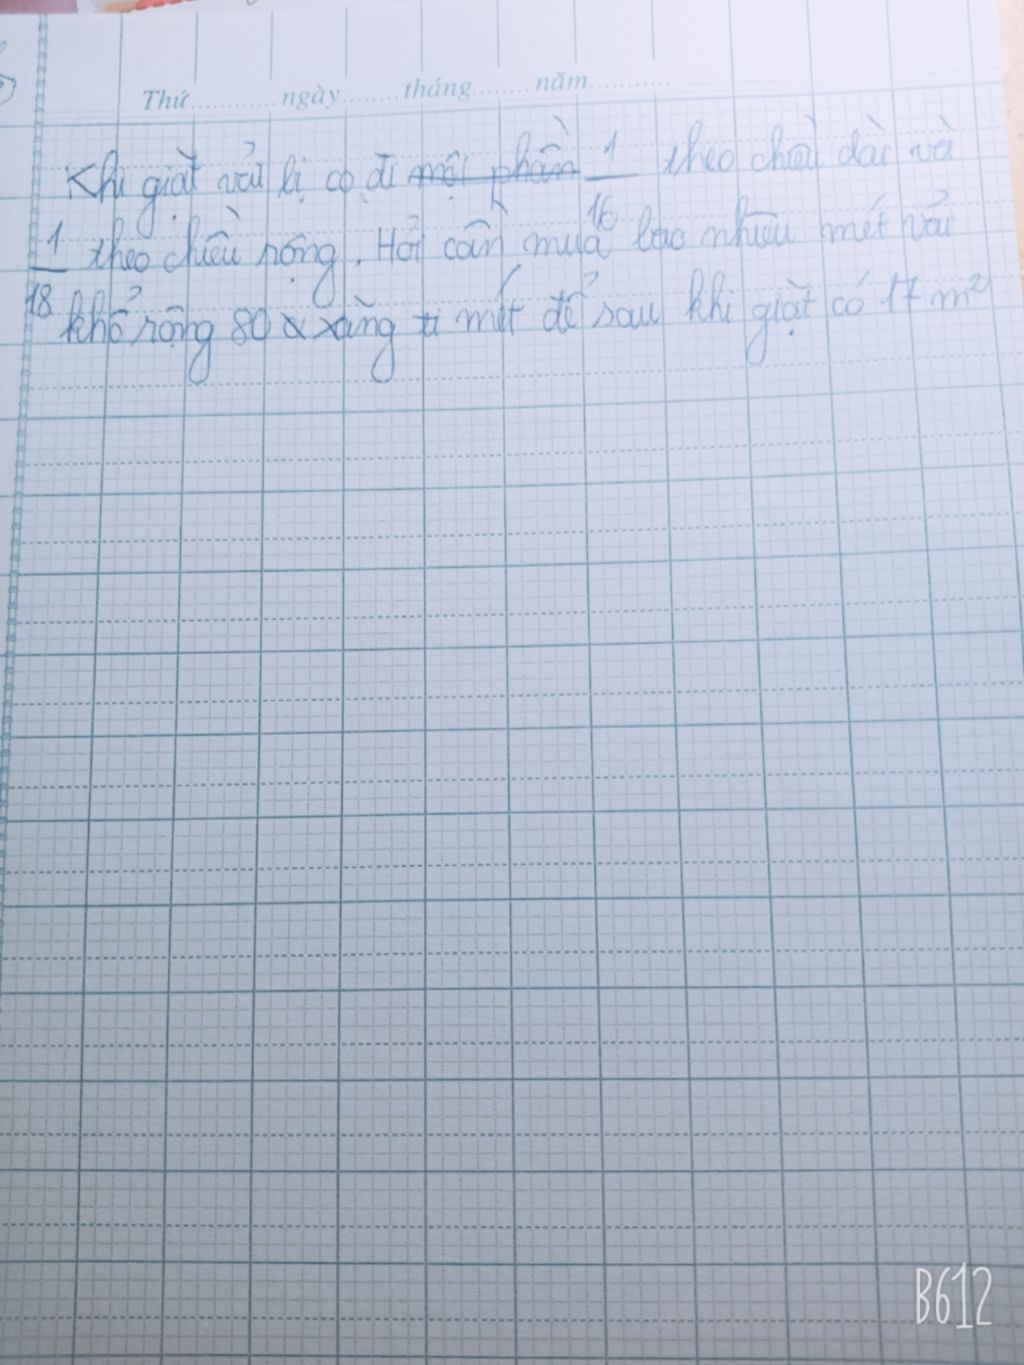 Thứ.............ngày........tháng........năm...........
Khi giặt vải bị co đi một phần 1/16 theo chiều dài và
1/18 theo chiều rộng. Hỏi cần mua bao nhiêu mét vải
khổ rộng 80 xăng ti mét để sau khi giặt có 17 m²
B612